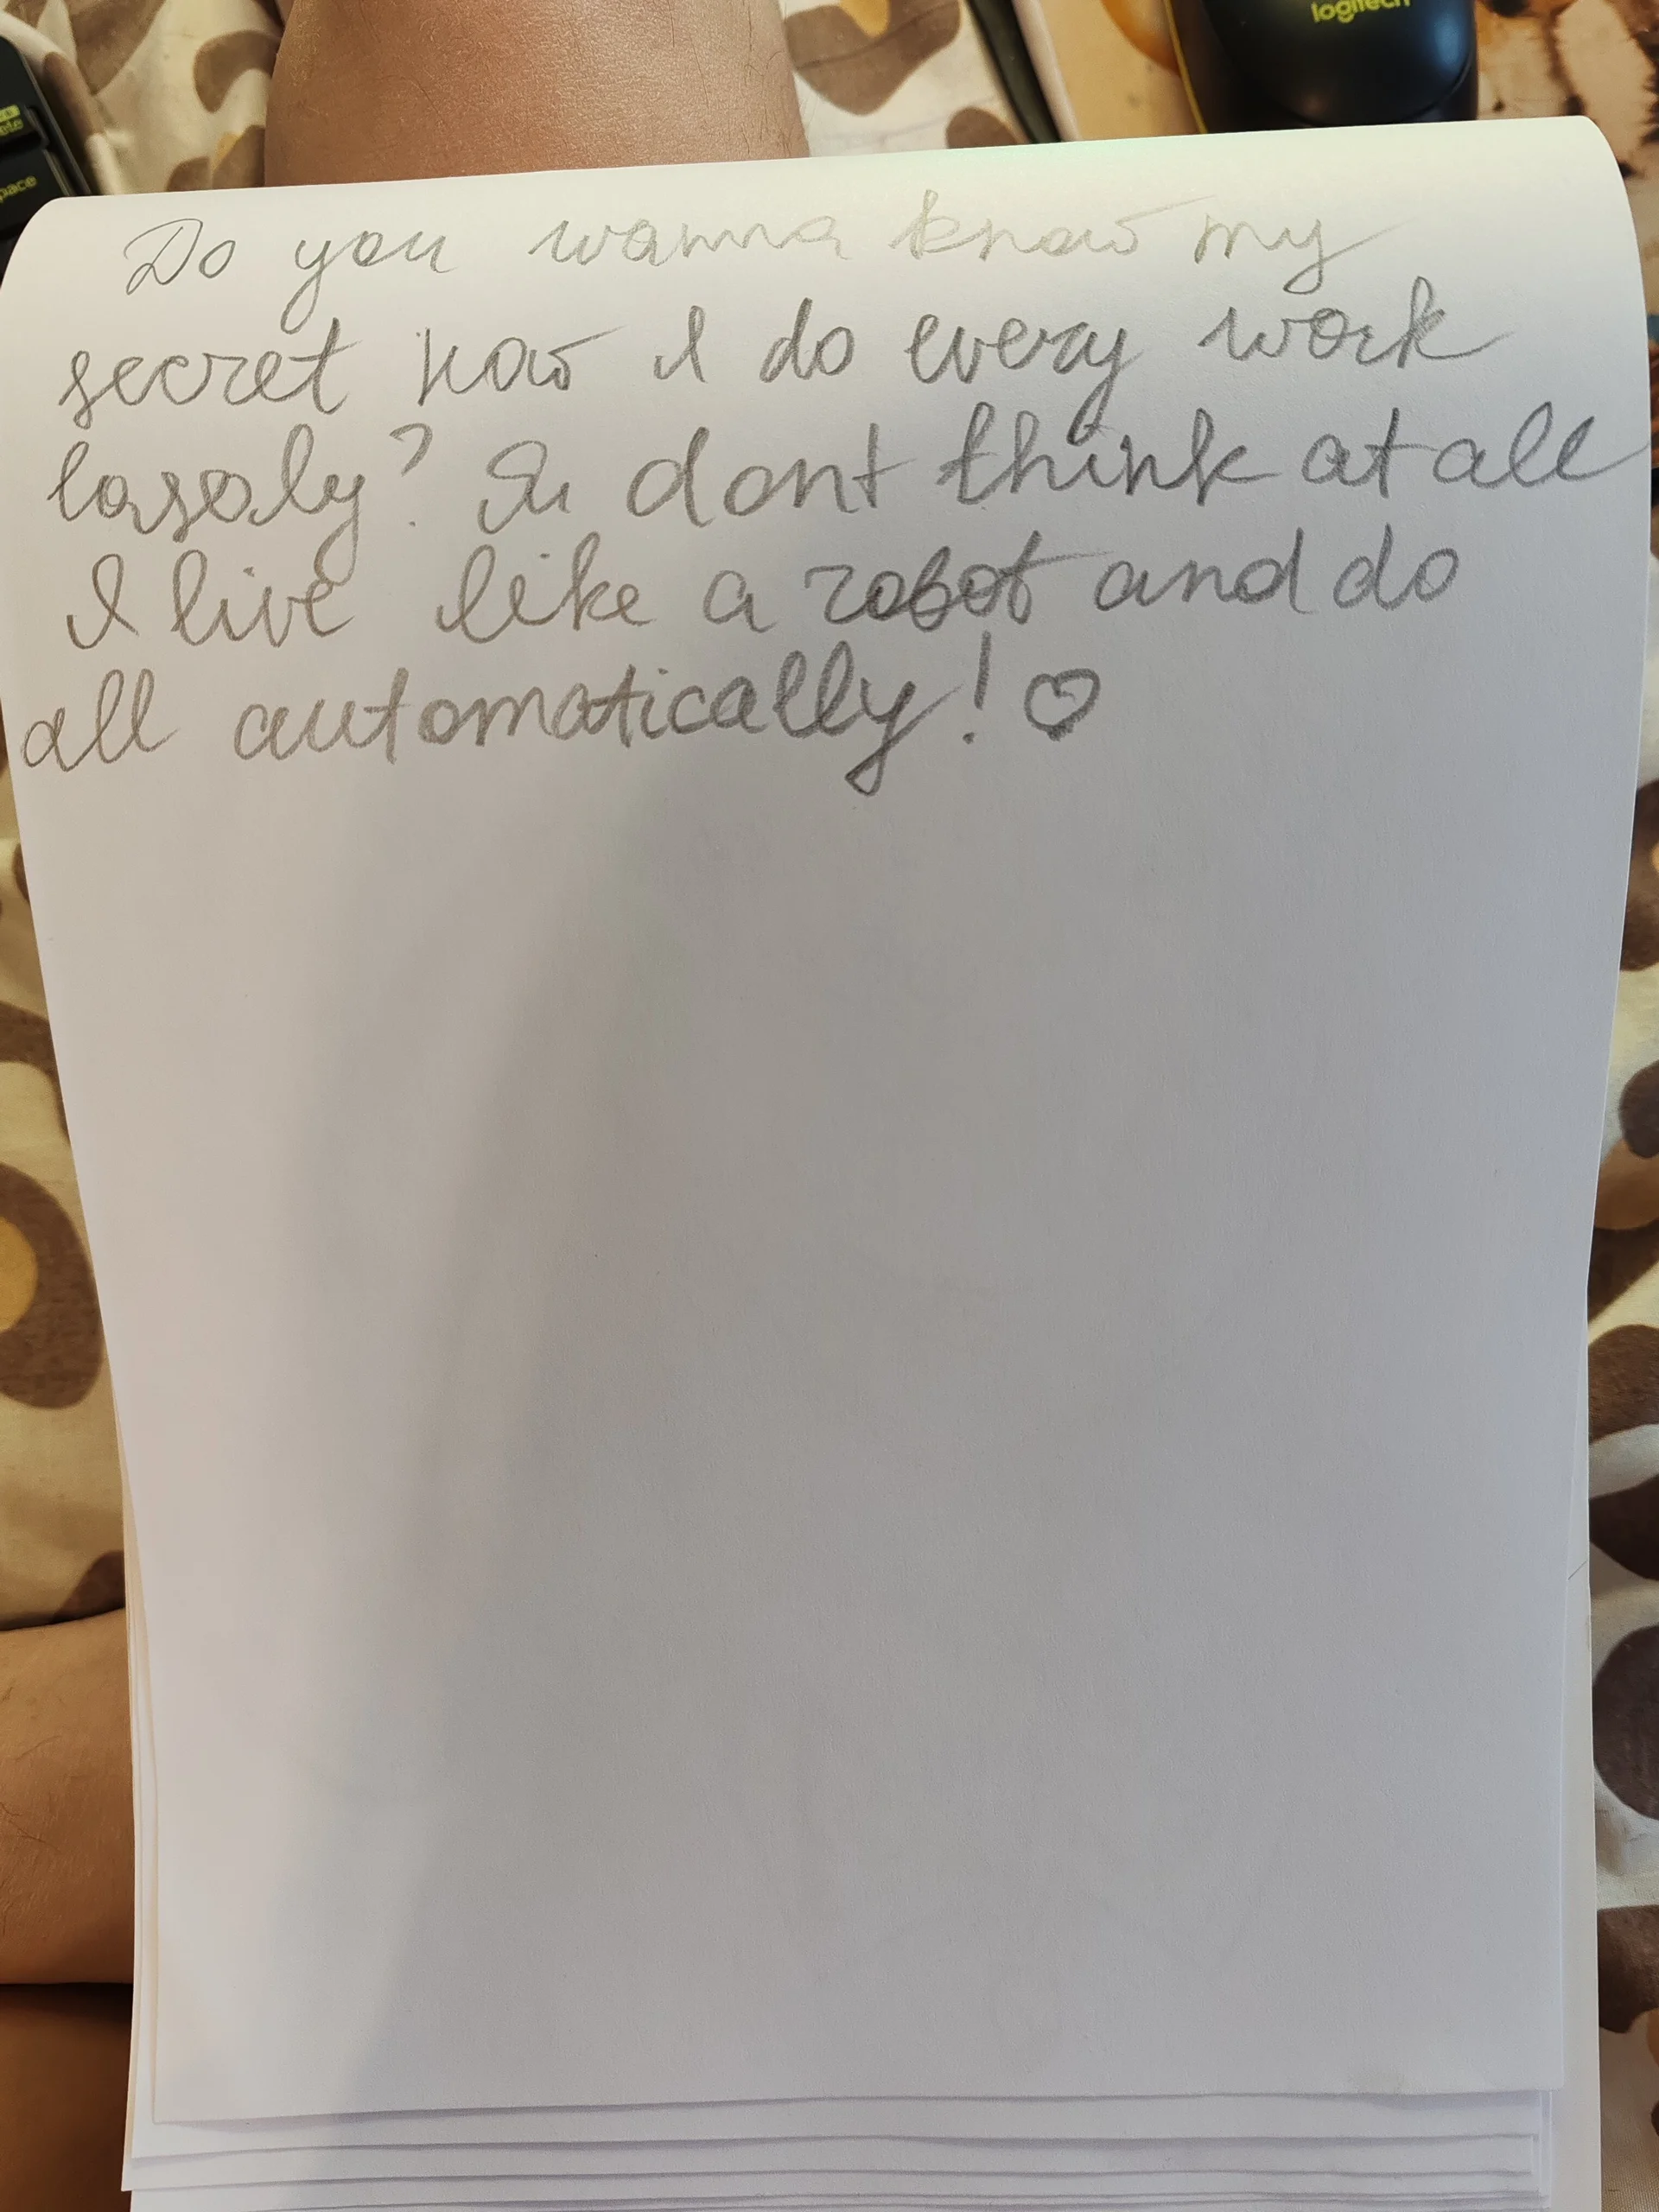 logitech
pace
Do you wanna know my
secret how I do every work
lasaly? I dont think at all
I live like a robot and do
all automatically! ♡